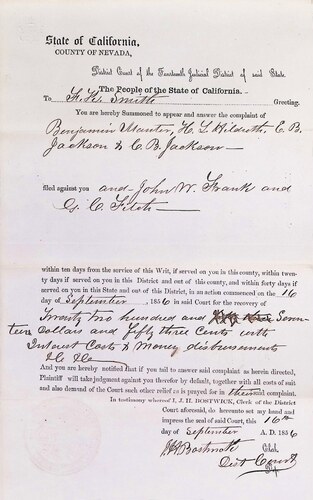 State of California,
COUNTY OF NEVADA,
District Court of the Fourteenth Judicial District of said State.
The People of the State of California.
To H. H. Smith Greeting.
You are hereby Summoned to appear and answer the complaint of
Benjamin Hunter, H. L. Hildreth, E. B.
Jackson & C. B. Jackson
filed against you and John W. Frank and
G. C. Fitch
within ten days from the service of this Writ, if served on you in this county, within twen-
ty days if served on you in this District and out of this county, and within forty days if
served on you in this State and out of this District, in an action commenced on the 16
day of September, 1856 in said Court for the recovery of
Twenty two hundred and Seven-
teen dollars and fifty three Cents with
Interest Costs & Money disbursements
&c &c
And you are hereby notified that if you fail to answer said complaint as herein directed,
Plaintiff will take judgment against you therefor by default, together with all costs of suit
and also demand of the Court such other relief as is prayed for in their said complaint.
In testimony whereof I, J. H. BOSTWICK, Clerk of the District
Court aforesaid, do hereunto set my hand and
impress the seal of said Court, this 16th
day of September A. D. 1856
J H Bostwick Clerk
Dist Court